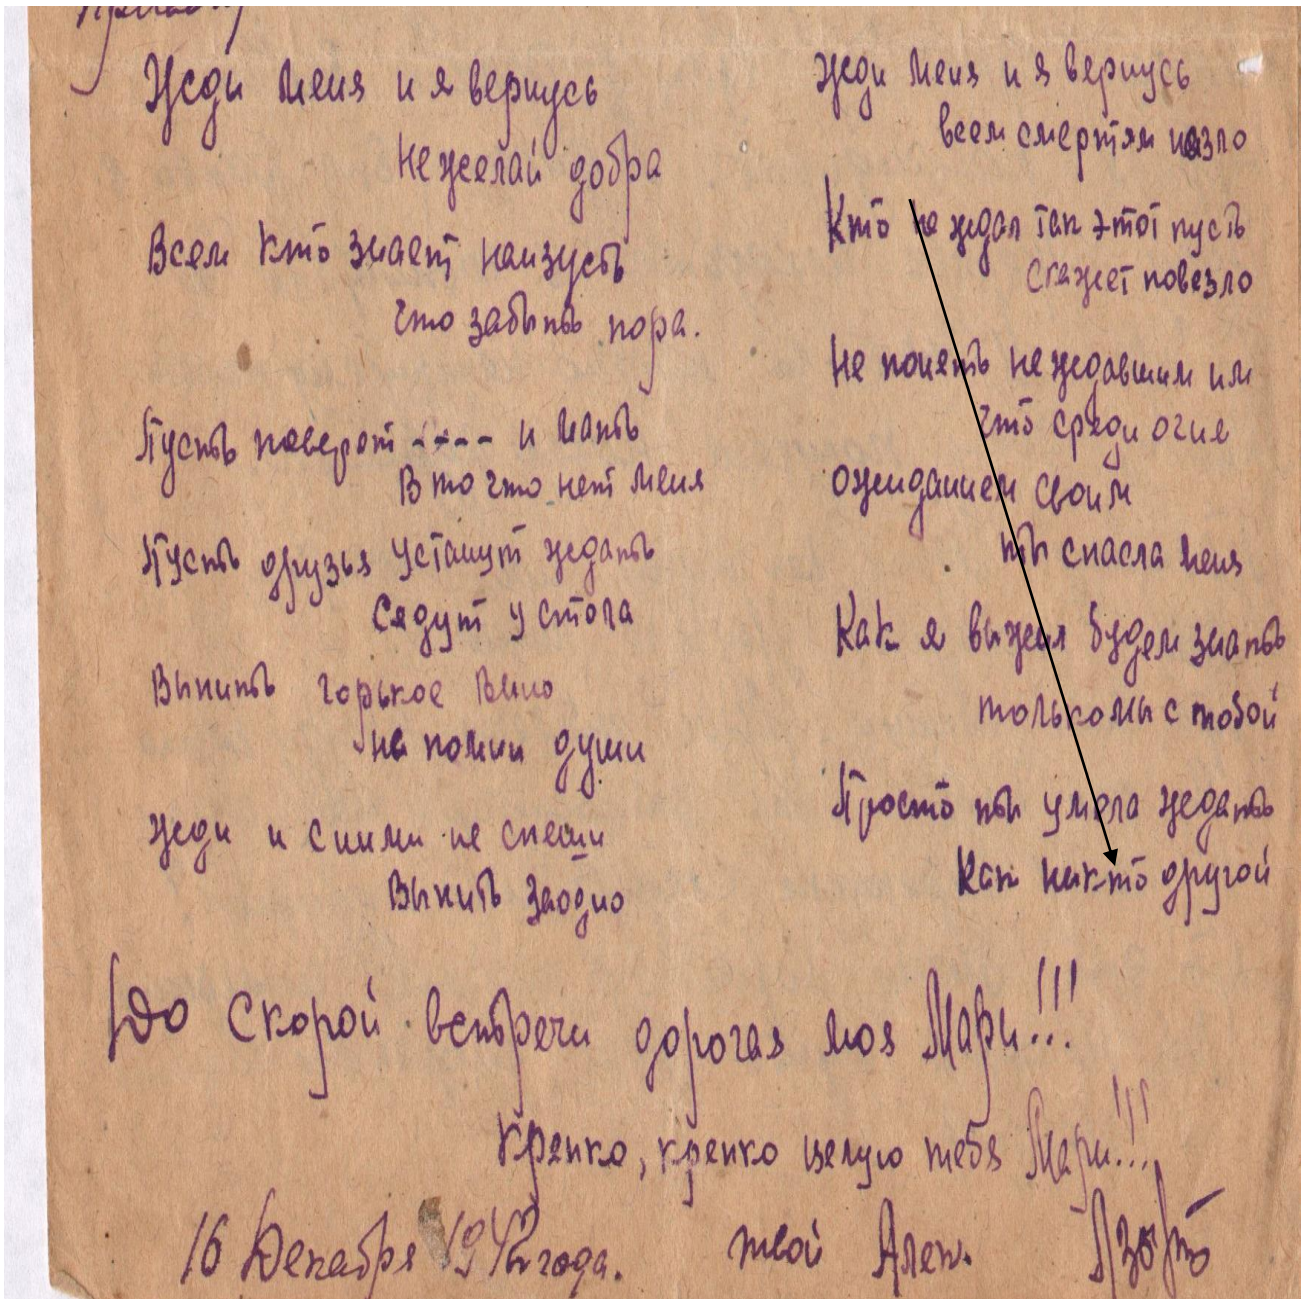 Жди меня и я вернусь
Не желай добра
Всем кто знает наизусть
Что забыть пора.
Пусть поверят ---- и мать
В то что нет меня
Пусть друзья устанут ждать
Сядут у стола
Выпить горькое вино
на помин души
Жди и сними не спеши
Выпить заодно
Жди меня и я вернусь
всем смертям назло
Кто не ждал так этот пусть
скажет повезло
Не понять не ждавшим им
что среди огня
ожиданием своим
ты спасла меня
Как я выжил будем знать
только мы с тобой
Просто ты умела ждать
Как никто другой
До скорой встречи дорогая моя Мари!!!
Крепко, крепко целую тебя Мари!!!
16 Декабря 1942 года. твой Алек.